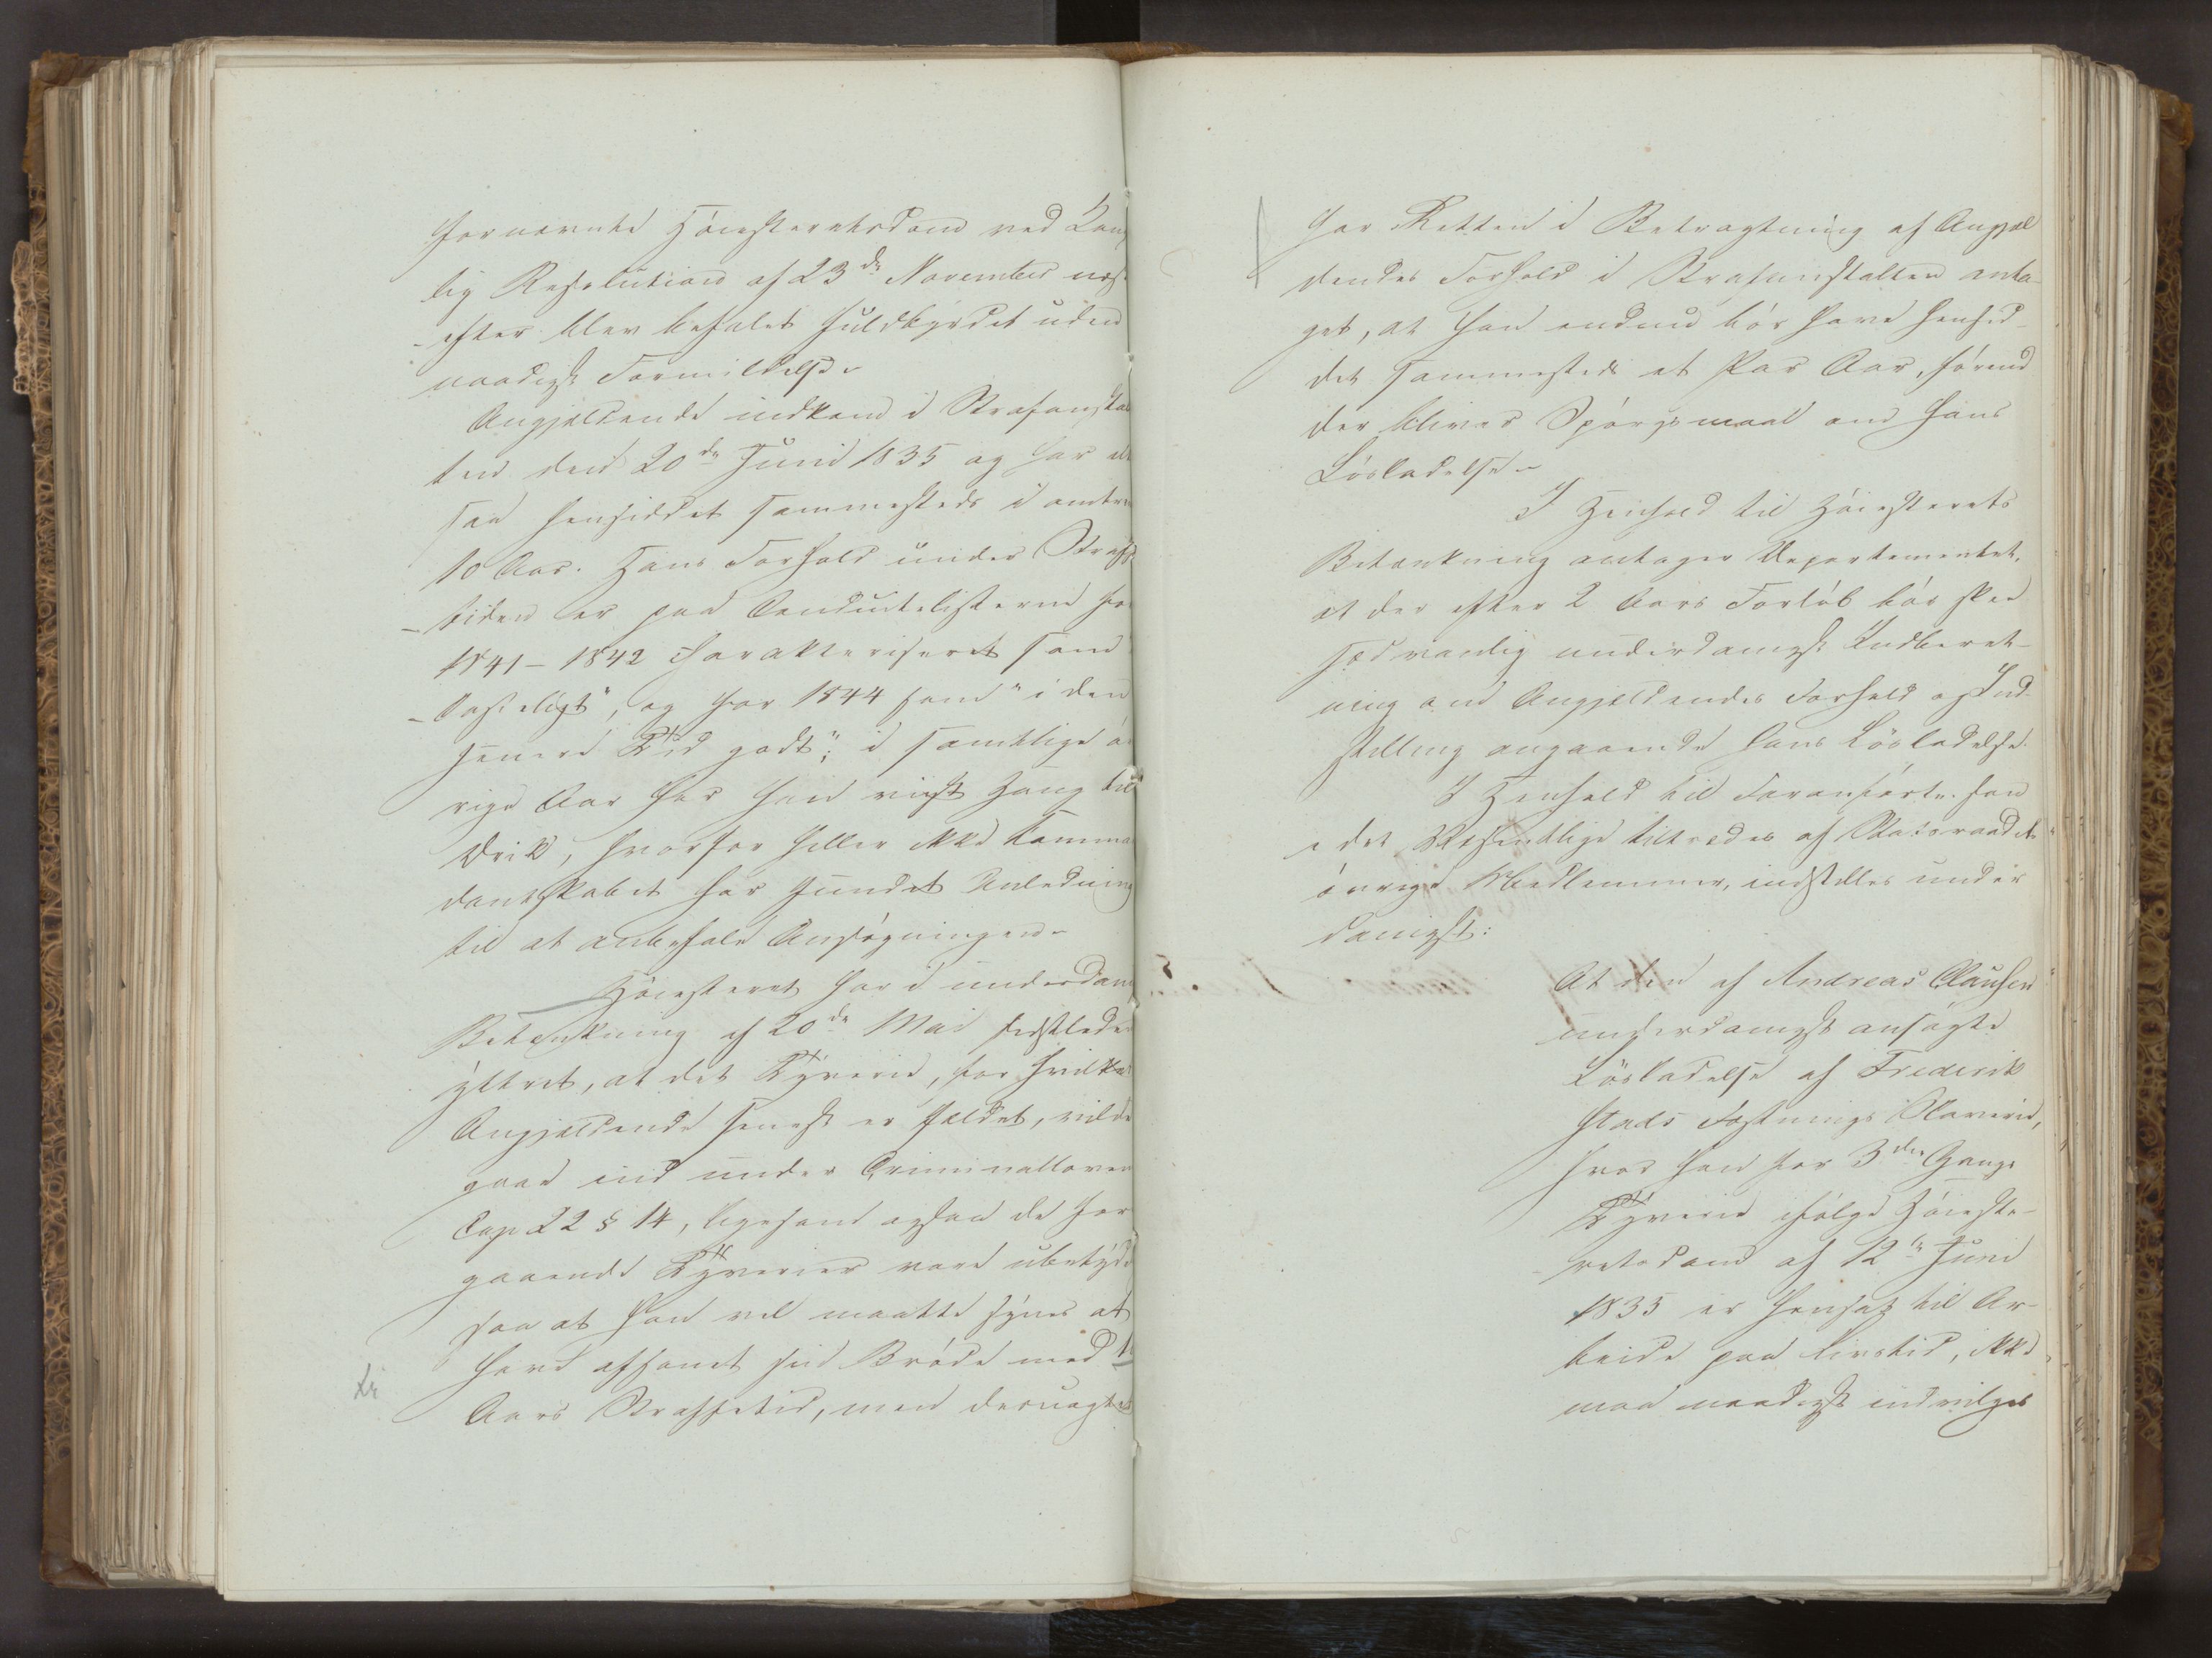 fornævnte Høiesteretsdom ved Kong
lig Resolution af 23de November næst
efter blev befalet fuldbyrdet uden
naadigst Formildelse.
Angjeldende indkom i Strafanstal
ten den 20de Juni 1835 og har alt
saa hensiddet sammesteds i omtrent
10 Aar. Hans Forhold under Straf
tiden er paa Conduitelisterne for
1841-1842 charakteriseret som
"lasteligt", og for 1844 som "i den
senere Tid godt"; i samtlige øv
rige Aar har han viist Hang til
Drik, hvorfor heller ikke Comman
dantskabet har fundet Anledning
til at anbefale Ansøgningen.
Høiesteret har i underdan
Betænkning af 20de Mai sidstleden
yttret, at det Tyverie, for hvilket
Angjeldende senest er fældet, vilde
gaae ind under Criminalloven
Cap 22 § 14, ligesom ogsaa de for
gaaende Tyverier vare ubetyde
saa at han vel maatte synes at
have afsonet sin Brøde med 10
Aars Straffetid, men desuagtet
har Retten i Betragtning af Angjæl
dendes Forhold i Strafanstalten anta-
get, at han endnu bør have hensid-
det sammesteds et Par Aar, førend
der bliver Spørgsmaal om hans
Løsladelse.
I Henhold til Høiesterets
Betænkning antager Departementet,
at der efter 2 Aars Forløb bør skee
sædvanlig underdanigst Indberet-
ning om Angjeldendes Forhold og Ind-
stilling angaaende hans Løsladelse.
I Henhold til Foranførte, som
i det Væsentlige tiltrædes af Statsraadets
øvrige Medlemmer, indstilles under
danigst:
At den af Andreas Clausen
underdanigst ansøgte
Løsladelse af Frederik
stads Fæstnings Slaverie,
hvor han for 3die Gangs
Tyverie ifølge Høieste-
retsdom af 12te Juni
1835 er hensat til Ar-
beide paa Livstid, ikke
maa naadigst indvilges